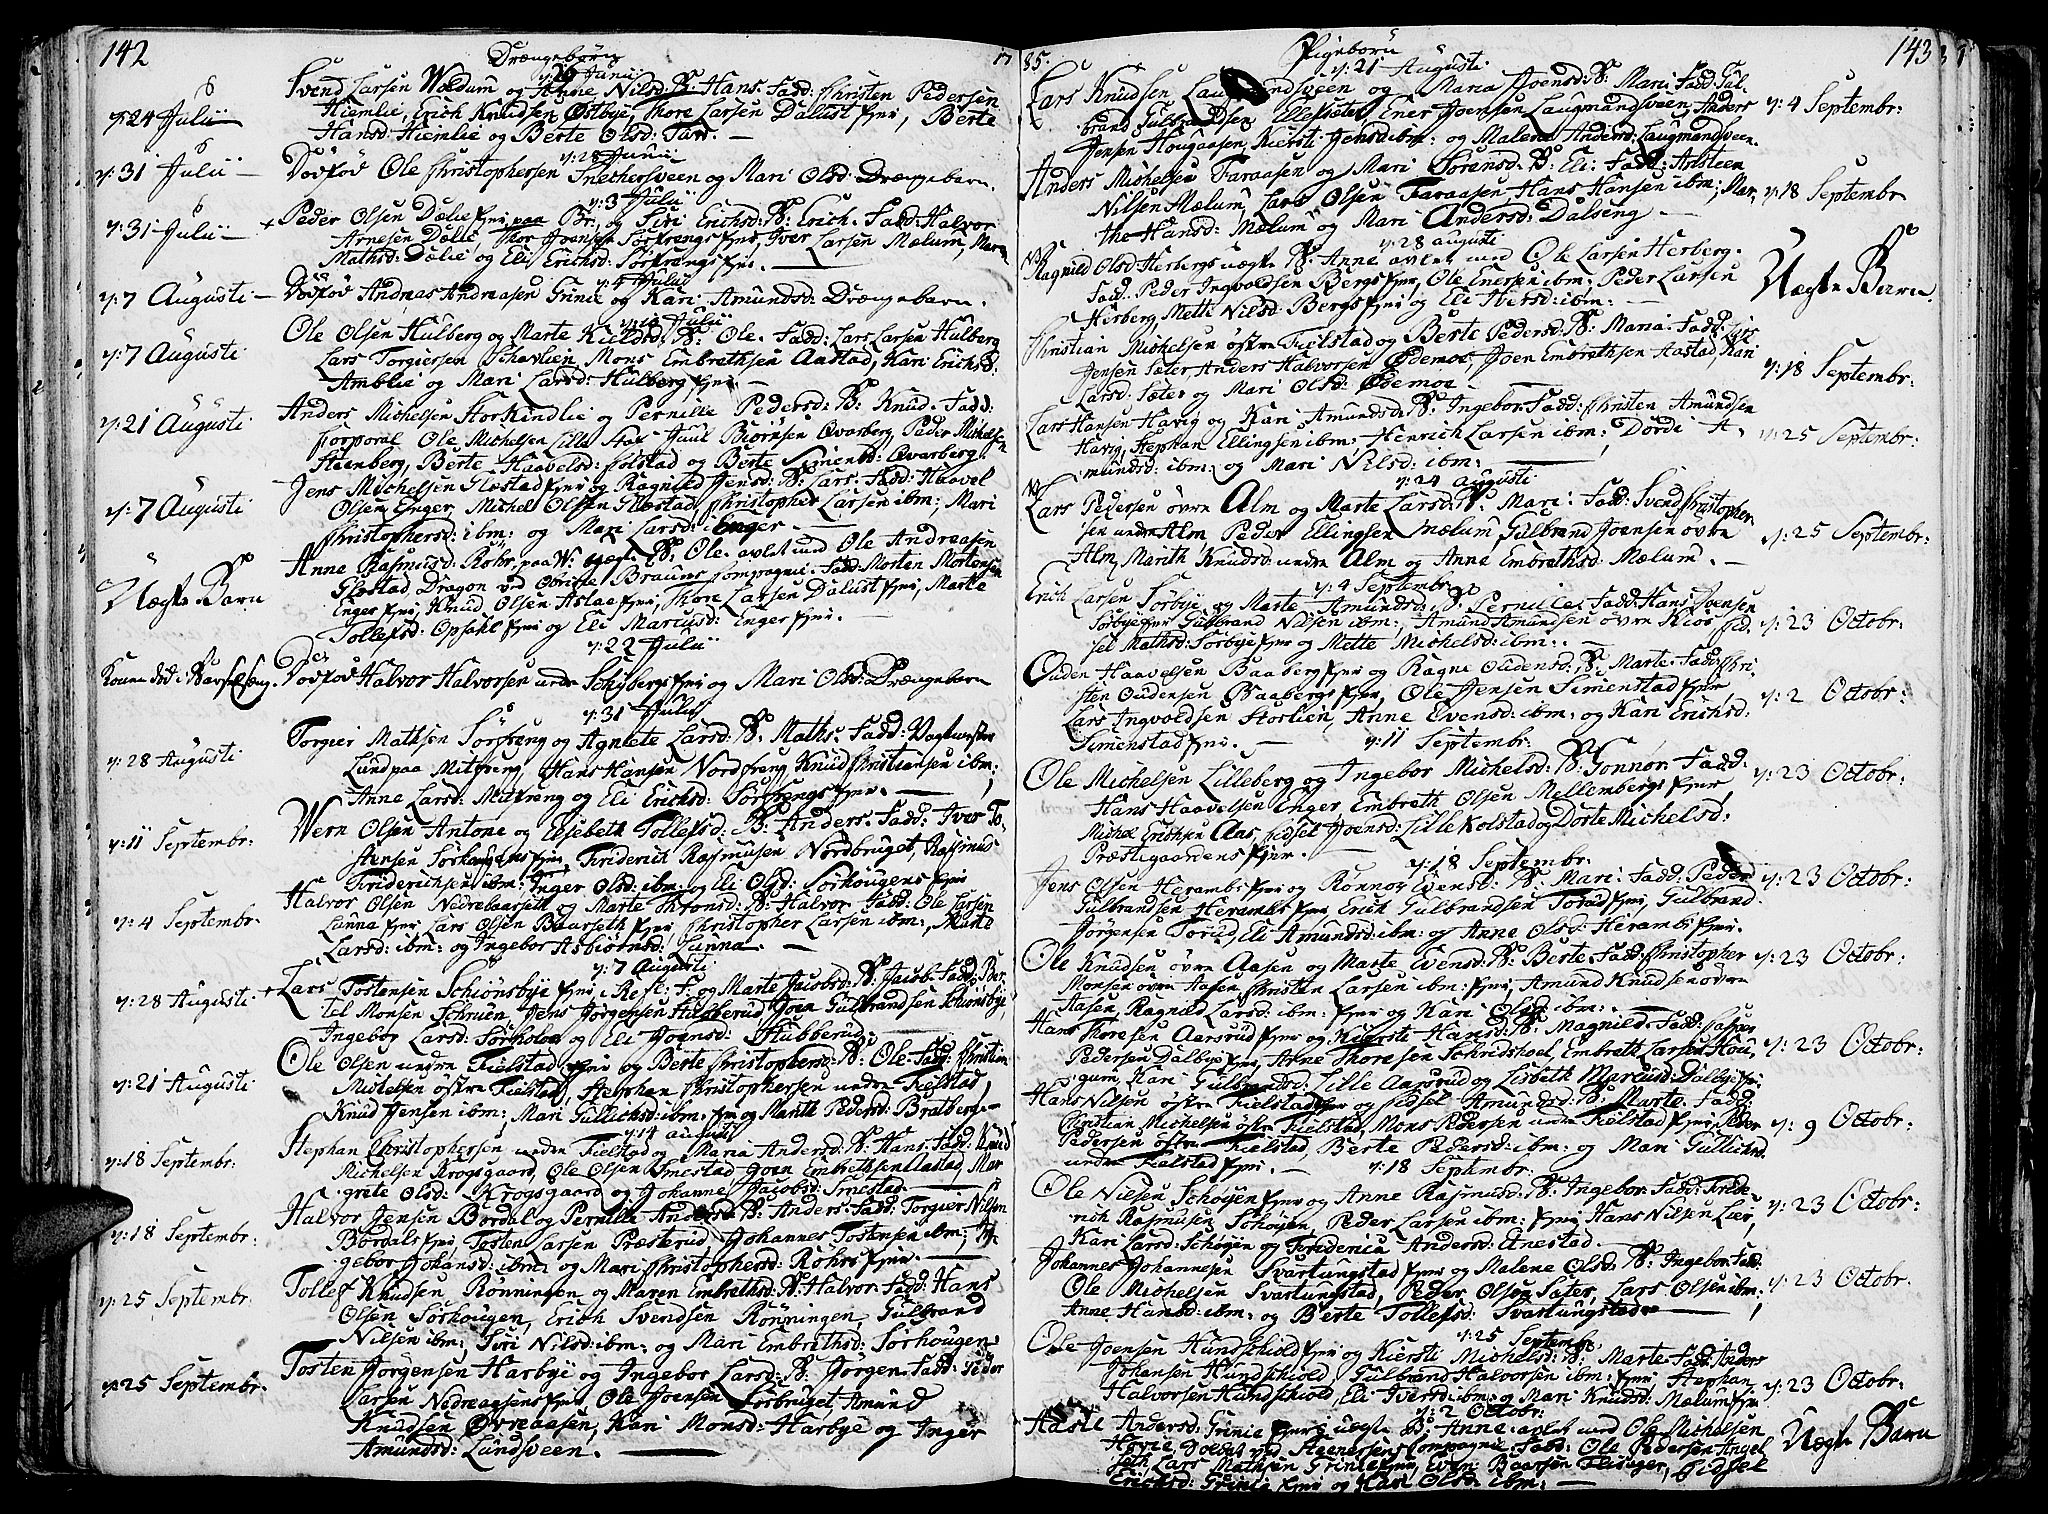 142
Drængebørn
17
d: 26 Junii
d: 24 Julii
Svend Larsen Woldum og Anne Nilsd: B: Hans. Fadd: Christen Pedersen
Hiemlie, Erich Knudsen Østbye, Thore Larsen Dalust ejer, Berte
Hansd: Hiemlie og Berte Olsd:
d: 28 Junii
d: 31 Julii
Dødfød Ole Christophersen Snekersveen og Mari Olsd: Drængebarn.
d: 3 Julii
d: 31 Julii
Peder Olsen Dælie ejer paa Br: og Siri Erichsd: B: Erich. Fadd: Halvor
Arnesen Dælie, Thor Joensen Sørstrengs ejer, Iver Larsen Mælum, Maren
Mathsd: Dælie og Eli Erichsd: Sørstrengs ejer.
d: 7 Augusti
Dødfød Andreas Andreasen Grinie og Kari Amundsd: Drængebarn.
d: 7 Augusti
Ole Olsen Hulberg og Marte Kieldsd: B: Ole. Fadd: Lars Larsen Hulberg
Lars Torgiersen Scharlien, Mons Embrethsen Aastad, Kari Erichsd:
Amblie og Mari Larsd: Hulberg ejer.
d: 21 Augusti
Anders Michelsen Storkindlie og Pernille Pedersd: B: Knud. Fadd:
Corporal Ole Michelsen Lille Staf, Juul Biørnsen Qvarberg, Peder Michelsen
Steenberg, Berte Haavelsd: Colstad og Berte Simensd: Qvarberg.
d: 7 Augusti
Jens Michelsen Glæstad ejer og Ragnild Jensd: B: Lars. Fadd: Haavel
Olsen Enger, Michel Olsen Glæstad, Christopher Larsen ibm; Mari
Christophersd: ibm: og Mari Larsd: Enger.
Uægte Barn
Anne Rasmusd: Røhr, paa W: uægte B: Ole. avlet med Ole Andreasen
Glæstad Dragon ved Obriste Brauns Compagnie. Fadd: Morten Mortensen
Enger ejer, Knud Olsen Aslae ejer, Thore Larsen Dalust ejer, Marte
Tollefsd: Opsahl ejer og Eli Marcusd: Enger ejer.
d: 22 Julii
Konen død i Barselseng.
Dødfød Halvor Halvorsen undr Schiibergs ejer og Mari Olsd: Drængebarn
d: 31 Julii
d: 28 Augusti
Torgier Mathsen Sørstreng og Agnete Larsd: B: Maths. Fadd: Vagtmester
Lund paa Mitstreng, Hans Hansen Nordstreng, Knud Christiansen ibm;
Anne Larsd: Mitstreng og Eli Erichsd: Sørstrengs ejer.
d: 11 Septembr:
Wern Olsen Antone og Elsebeth Tollefsd: B: Anders. Fadd: Iver To-
stensen Sørhougens ejer, Friderich Rasmusen Nordbruget, Rasmus
Friderichsen ibm: Inger Olsd: ibm: og Eli Olsd: Sørhougens ejer
d: 4 Septembr:
Halvor Olsen Nedrebaarseth og Marte Thronsd: B: Halvor Fadd: Ole Larsen
Lunna ejer Lars Olsen Baarseth ejer, Christopher Larsen ibm:, Marte
Larsd: ibm: og Ingebor Asbiørnsd: Lunna.
d: 7 Augusti
d: 28 Augusti
Lars Tostensen Schiønsbye ejer i Ref: F: og Marte Jacobsd: B: Jacob. Fadd: Ber-
tel Monsen Schrien, Jens Jørgensen Stubberud, Joen Gulbrandsen Schiønsbye,
Ingebor Larsd: Sørholoe og Eli Joensd: Stubberud.
d: 21 Augusti
Ole Olsen undre Fielstad ejer og Berte Christophersd: B: Ole. Fadd: Christian
Michelsen østre Fielstad, Stephan Christophersen undre Fielstad,
Knud Jensen ibm; Mari Gullichsd: ibm: ejer og Marte Pedersd: Bratberg.
d: 14 augusti
d: 18 Septembr:
Stephan Christophersen undre Fielstad og Maria Andersd: B: Hans. Fadd: Knud
Michelsen Krogsgaard, Ole Olsen Smestad, Joen Embrethsen Aastad, Mar-
grete Olsd: Krogsgaard og Johanne Jacobsd: Smestad.
d: 18 Septembr:
Halvor Jensen Bordal og Pernille Andersd: B: Anders. Fadd: Torgier Nilsen
Bordals ejer, Tosten Larsen Præsterud, Johannes Tostensen ibm; In-
gebor Johansd: ibm: og Mari Christophersd: Røhrs ejer.
d: 25 Septembr:
Tollef Knudsen Rønningen og Maren Embrethsd: B: Halvor. Fadd: Hans
Olsen Sørhougen, Erich Svendsen Rønningen, Gulbrand
Nilsen ibm; Siri Nilsd: ibm: og Mari Embrethsd: Sørhougen.
d: 25 Septembr:
Tosten Jørgensen Harbye og Ingebor Larsd: B: Jørgen. Fadd: Peder
Larsen Nedreaasens ejer, Ole Joensen Sørbruget, Amund
Knudsen Øvreaasen, Kari Monsd: Harbye og Inger
Amundsd: Lundsveen.
85.
Pigebørn
143
d: 21 Augusti
Lars Knudsen Laugmandsveen og Maria Joensd: B: Mari. Fadd: Gul-
brand Gulbrandsen Ellesæter, Ener Joensen Laugmandsveen, Anders
Jensen Hougaasen, Kiersti Jensd: ibm: og Malene Andersd: Laugmandsveen.
d: 4 Septembr:
Anders Michelsen Faraasen og Mari Sørensd: B: Eli. Fadd: Aasteen
Nilsen Mælum, Lars Olsen Faraasen, Hans Hansen ibm; Mar-
the Hansd: Mælum og Mari Andersd: Dalseng.
d: 18 Septembr
d: 28 augusti
Ragnild Olsd: Herbergs uægte B: Anne avlet med Ole Larsen Herberg.
Fadd: Peder Ingvoldsen Bergs ejer, Ole Enersen ibm: Peder Larsen
Herberg, Mette Nilsd: Bergs ejer og Eli Iversd: ibm:
Uægte Barn
Christian Michelsen østre Fielstad og Berte Pedersd: B: Maria. Fadd: Lars
Jensen Sæter, Anders Halvorsen Ødemoe, Joen Embrethsen Aastad, Kari
Larsd: Sæter og Mari Olsd: Ødemoe
d: 18 Septembr:
Lars Hansen Havig og Kari Amundsd: B: Ingebor. Fadd: Christen Amundsen
Havig, Stephan Ellingsen ibm: Henrich Larsen ibm; Dorde A-
mundsd: ibm: og Mari Nilsd: ibm:
d: 25 Septembr:
d: 24 augusti
Lars Pedersen øvre Alm og Marte Larsd: B: Mari: Fadd: Svend Christopher-
sen undre Alm, Peder Ellingsen Mælum, Gulbrand Joensen øvre
Alm, Marith Knudsd: undre Alm og Anne Embrethsd: Mælum.
d: 25 Septembr:
d: 4 Septembr
Erich Larsen Sørbye og Marte Amundsd: B: Pernille. Fadd: Hans Joensen
Sørbye ejer Gulbrand Nilsen ibm:, Amund Amundsen øvre Kios, Sid-
sel Mathsd: Sørbye ejer og Mette Michelsd: ibm:
d: 23 Octobr:
Ouden Haavelsen Baaberg ejer og Ragne Oudensd: B: Marte. Fadd: Chri-
sten Oudensen Baabergs ejer, Ole Jensen Simenstad ejer,
Lars Ingvoldsen Storlien, Anne Evensd: ibm: og Kari Erichsd:
Simenstad ejer.
d: 2 Octobr:
d: 11 Septembr:
Ole Michelsen Lilleberg og Ingebor Michelsd: B: Gonnor. Fadd:
Hans Haavelsen Enger, Embreth Olsen Mellembergs ejer,
Michel Erichsen Aas, Sidsel Joensd: Lille Kolstad og Dorte Michelsd:
Præstegaardens ejer.
d: 23 Octobr:
d: 18 Septembr:
Jens Olsen Herambs ejer og Rønnov Evensd: B: Mari. Fadd: Peder
Gulbrandsen Herambs ejer, Erich Gulbrandsen Torud ejer, Gulbrand
Jørgensen Torud, Eli Amundsd: ibm: og Anne Olsd: Herambs ejer.
d: 23 Octobr:
Ole Knudsen øvre Aasen og Marte Evensd: B: Berte. Fadd: Christopher
Monsen øvre Aasen, Christen Larsen ibm: ejer, Amund Knudsen øvre
Aasen, Ragnild Larsd: ibm: ejer og Kari Olsd: ibm:
d: 23 Octobr:
Hans Thoresen Aarsrud ejer og Kiersti Hansd: B: Magnild. Fadd: Casper
Pedersen Dalbye ejer, Arne Thoresen Schridshoel, Embreth Larsen Hou-
gum, Kari Gulbrandsd: Lille Aarsrud og Lisbeth Marcusd: Dalbye ejer
d: 23 Octobr:
Hans Nilsen østre Fielstad ejer og Sidsel Amundsd: B: Marte. Fadd:
Christian Michelsen østre Fielstad, Mons Pedersen undre Fielstad ejer, Peder
Pedersen østre Fielstad, Berte Pedersd: ibm: og Mari Gullichsd:
undre Fielstad ejer.
d: 9 Octobr:
d: 18 Septembr:
Ole Nilsen Schøyen ejer og Anne Rasmusd: B: Ingebor. Fadd: Fride-
rich Rasmusen Schøyen, Peder Larsen ibm: ejer, Hans Nilsen Lier,
Kari Larsd: Schøyen og Friderica Andersd: Anestad.
d: 23 Octobr:
Johannes Johannesen Svartungstad ejer og Malene Olsd: B: Ingebor. Fadd:
Ole Michelsen Svartungstad, Peder Olsen Sæter, Lars Olsen ibm;
Anne Hansd: ibm: og Berte Tollefsd: Svartungstad
d: 23 Octobr:
d: 25 Septembr.
Ole Joensen Hundschiold ejer og Kiersti Michelsd: B: Marte. Fadd: Anders
Johansen Hundschiold, Gulbrand Halvorsen ibm: ejer, Stephan
Halvorsen Hundschiold, Eli Iversd: ibm: og Mari Knudsd: Mælum ejer
d: 23 Octobr:
d: 2 Octobr:
Aasle Andersd: Grinie ejer uægte B: Anne avlet med Ole Michelsen
Hovie Soldat ved Steenersens Compagnie. Fadd: Ole Pedersen Angel-
seth, Lars Mathsen Grinie ejer, Even Baarsen Flisager, Sidsel
Erichsd: Grinie ejer og Kari Olsd: ibm:
Uægte Barn